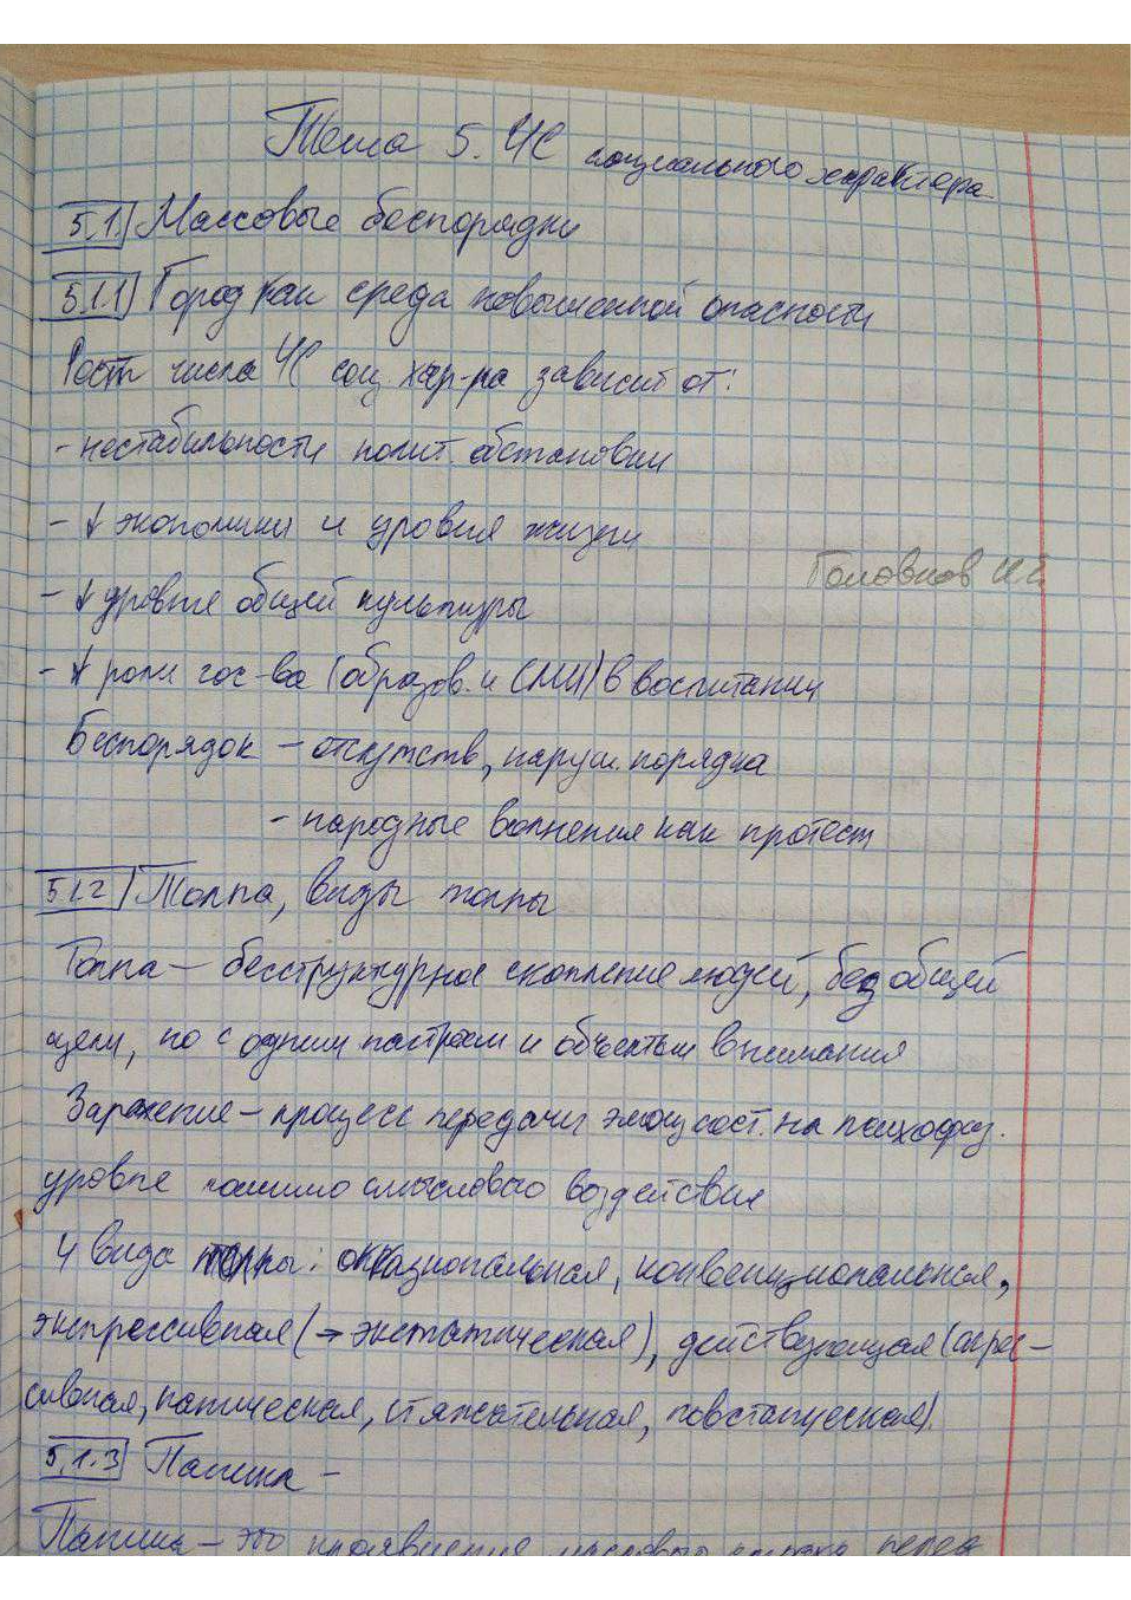 Тема 5. ЧС социального характера
5.1. Массовые беспорядки
5.1.1 Город как среда повышенной опасности
Рост числа ЧС соц хар-ра зависит от:
- нестабильности полит. обстановки
- ↓ экономики и уровня жизни
Головков И.Е.
- ↓ уровне общей культуры
- ↓ роли гос-ва (образов. и СМИ) в воспитании
Беспорядок – отсутств, наруш. порядка
- народные волнения как протест
5.1.2 Толпа, виды толпы
Толпа – бесструктурное скопление людей, без общей
цели, но с одним настроем и объектом внимания
Заражение – процесс передачи эмоц сост. на психофиз.
уровне помимо смыслового воздействия
4 вида толпы: окказиональная, конвенциональная,
экспрессивная (→ экстатическая), действующая (агрес-
сивная, паническая, стяжательная, повстанческая).
5.1.3 Паника –
Паника – это проявление массового страха перед